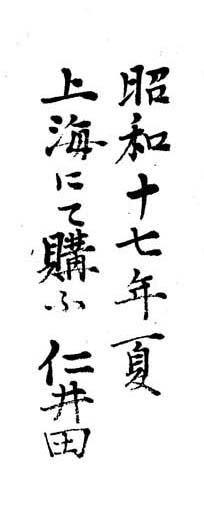 昭和十七年夏
上海にて購ふ 仁井田